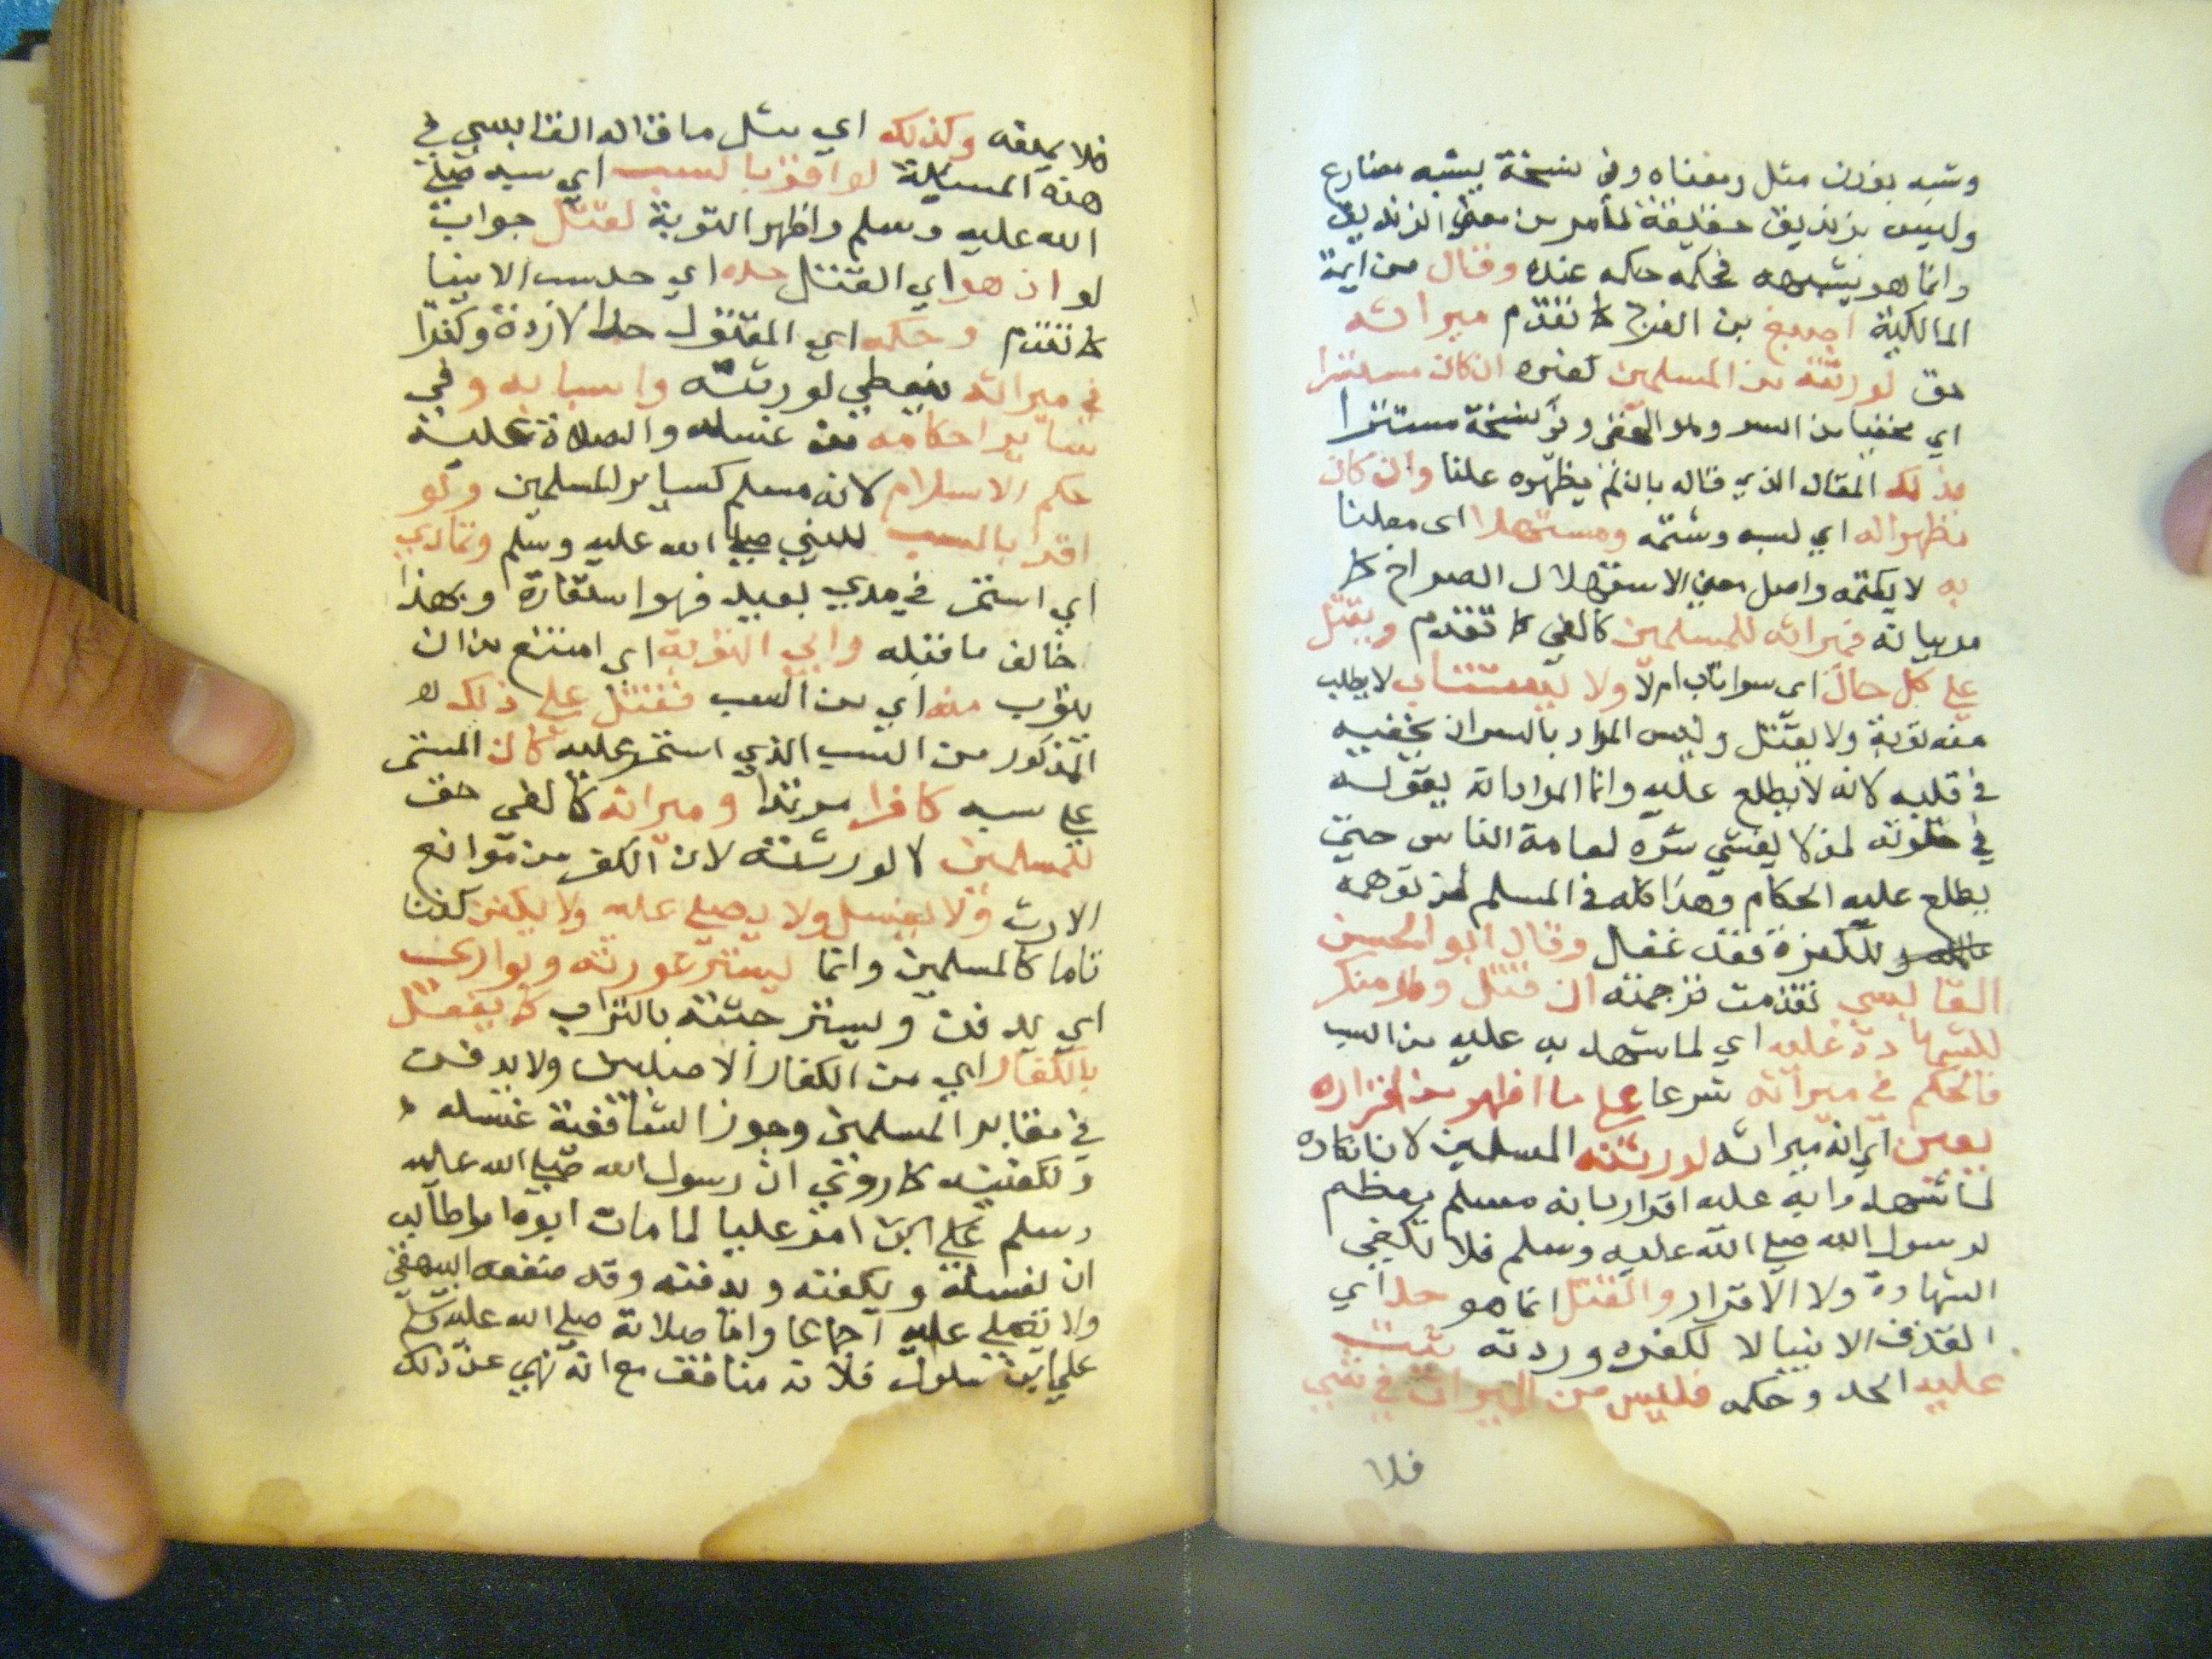 وشبه بوزن مثل ومعناه وفي نسخة يشبه مضارع
وليس بزنديق حقيقة لما مر من معنى الزنديق
وانما هو يشبهه فحكمه حكمه عنده وقال من ايمة
المالكية اصبغ بن الفرج كما تقدم ميراثه
حق لورثته من المسلمين لغيره ان كان مستسرا
اي مخفيا من السر وهو الخفي وفي نسخة مستترا
بذلك المقال الذي قاله بان لم يظهره علنا وان كان
مظهرا له اي لسبه وشتمه ومستهلا اى معلنا
به لا يكتمه واصل معنى الاستهلال الصراخ كما
مر بيانه فميراثه للمسلمين كالفي كما تقدم ويقتل
على كل حال اى سوا تاب ام لا ولا يستتاب لا يطلب
منه توبة ولا يقتل وليس المراد بالسر ان يخفيه
في قلبه لانه لا يطلع عليه وانما المراد انه يقوله
في خلوته لمن لا يفشي سره لعامة الناس حتى
يطلع عليه الحكام وهذا كله في المسلم فمن توهمه
للكفرة فقد غفل وقال ابو الحسن
القابسي تقدمت ترجمته ان قتل وهو منكر
للشهادة عليه اي لما شهد به عليه من السب
فالحكم في ميراثه شرعا على ما اظهر من اقراره
يعني اي انه ميراثه لورثته المسلمين لان انكاره
لما شهدوا به عليه اقرار بانه مسلم يعظم
لرسول الله صلى الله عليه وسلم فلا تكفي
الشهادة ولا الاقرار والقتل انما هو حد اي
القذف الانبيا لا لكفره وردته ثبت
عليه الحد وحكمه فليس من الميراث في شي
فلا
فلا يمنعه وكذلك اي مثل ما قاله القابسي في
هذه المسئلة لو اقر بالسب اي سبه صلى
الله عليه وسلم واظهر التوبة لقتل جواب
لو اذ هو اي القتل حده اي حد سب الانبيا
كما تقدم وحكمه اي المقتول حدا لا ردة وكفرا
في ميراثه فيعطي لورثته واسبابه وفي
ساير احكامه من غسله والصلاة عليه
حكم الاسلام لانه مسلم كساير المسلمين ولو
اقر بالسب للنبي صلى الله عليه وسلم وتمادى
اي استمر في مدى بعيد فهو استعارة وبهذا
خالف ما قبله وابى التوبة اي امتنع من ان
يتوب منه اي من السب فقتل على ذلك
المذكور من السب الذي استمر عليه كان المستمر
على سبه كافرا مرتدا وميراثه كالفى حق
للمسلمين لا لورثته لان الكفر من موانع
الارث ولا يغسل ولا يصلى عليه ولا يكفن كفنا
تاما كالمسلمين وانما يستر عورته ويوارى
اي يدفن ويستر جثته بالتراب كما يفعل
بالكفار اي من الكفار الاصليين ولا يدفن
في مقابر المسلمين وجوز الشافعية غسله
وتكفينه كما روي ان رسول الله صلى الله عليه
وسلم امر عليا لما مات ابوه ابو طالب
ان يغسله ويكفنه ويدفنه وقد ضعفه البيهقي
ولا يصلى عليه اجماعا واما صلاته صلى الله عليه وسلم
على ابن سلول فلانه منافق مع انه نهي عن ذلك